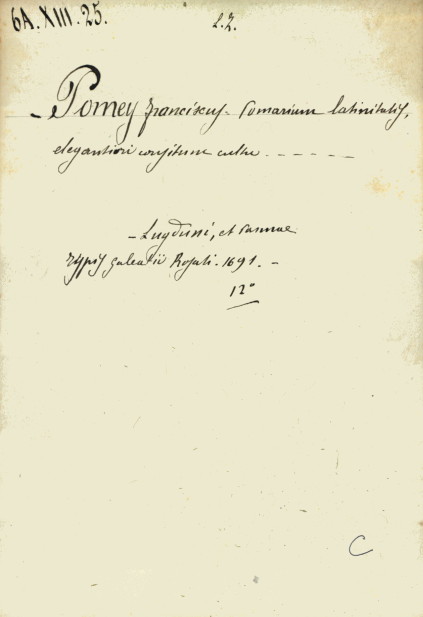 6A. XIII. 25.
L.Z.
- Pomey Franciscus - Pomarium latinitatis,
elegantiori consitum cultu - - - - - -
- Lugduni, et Parmae
typis Galeatii Rosati - 1691. -
12°
C